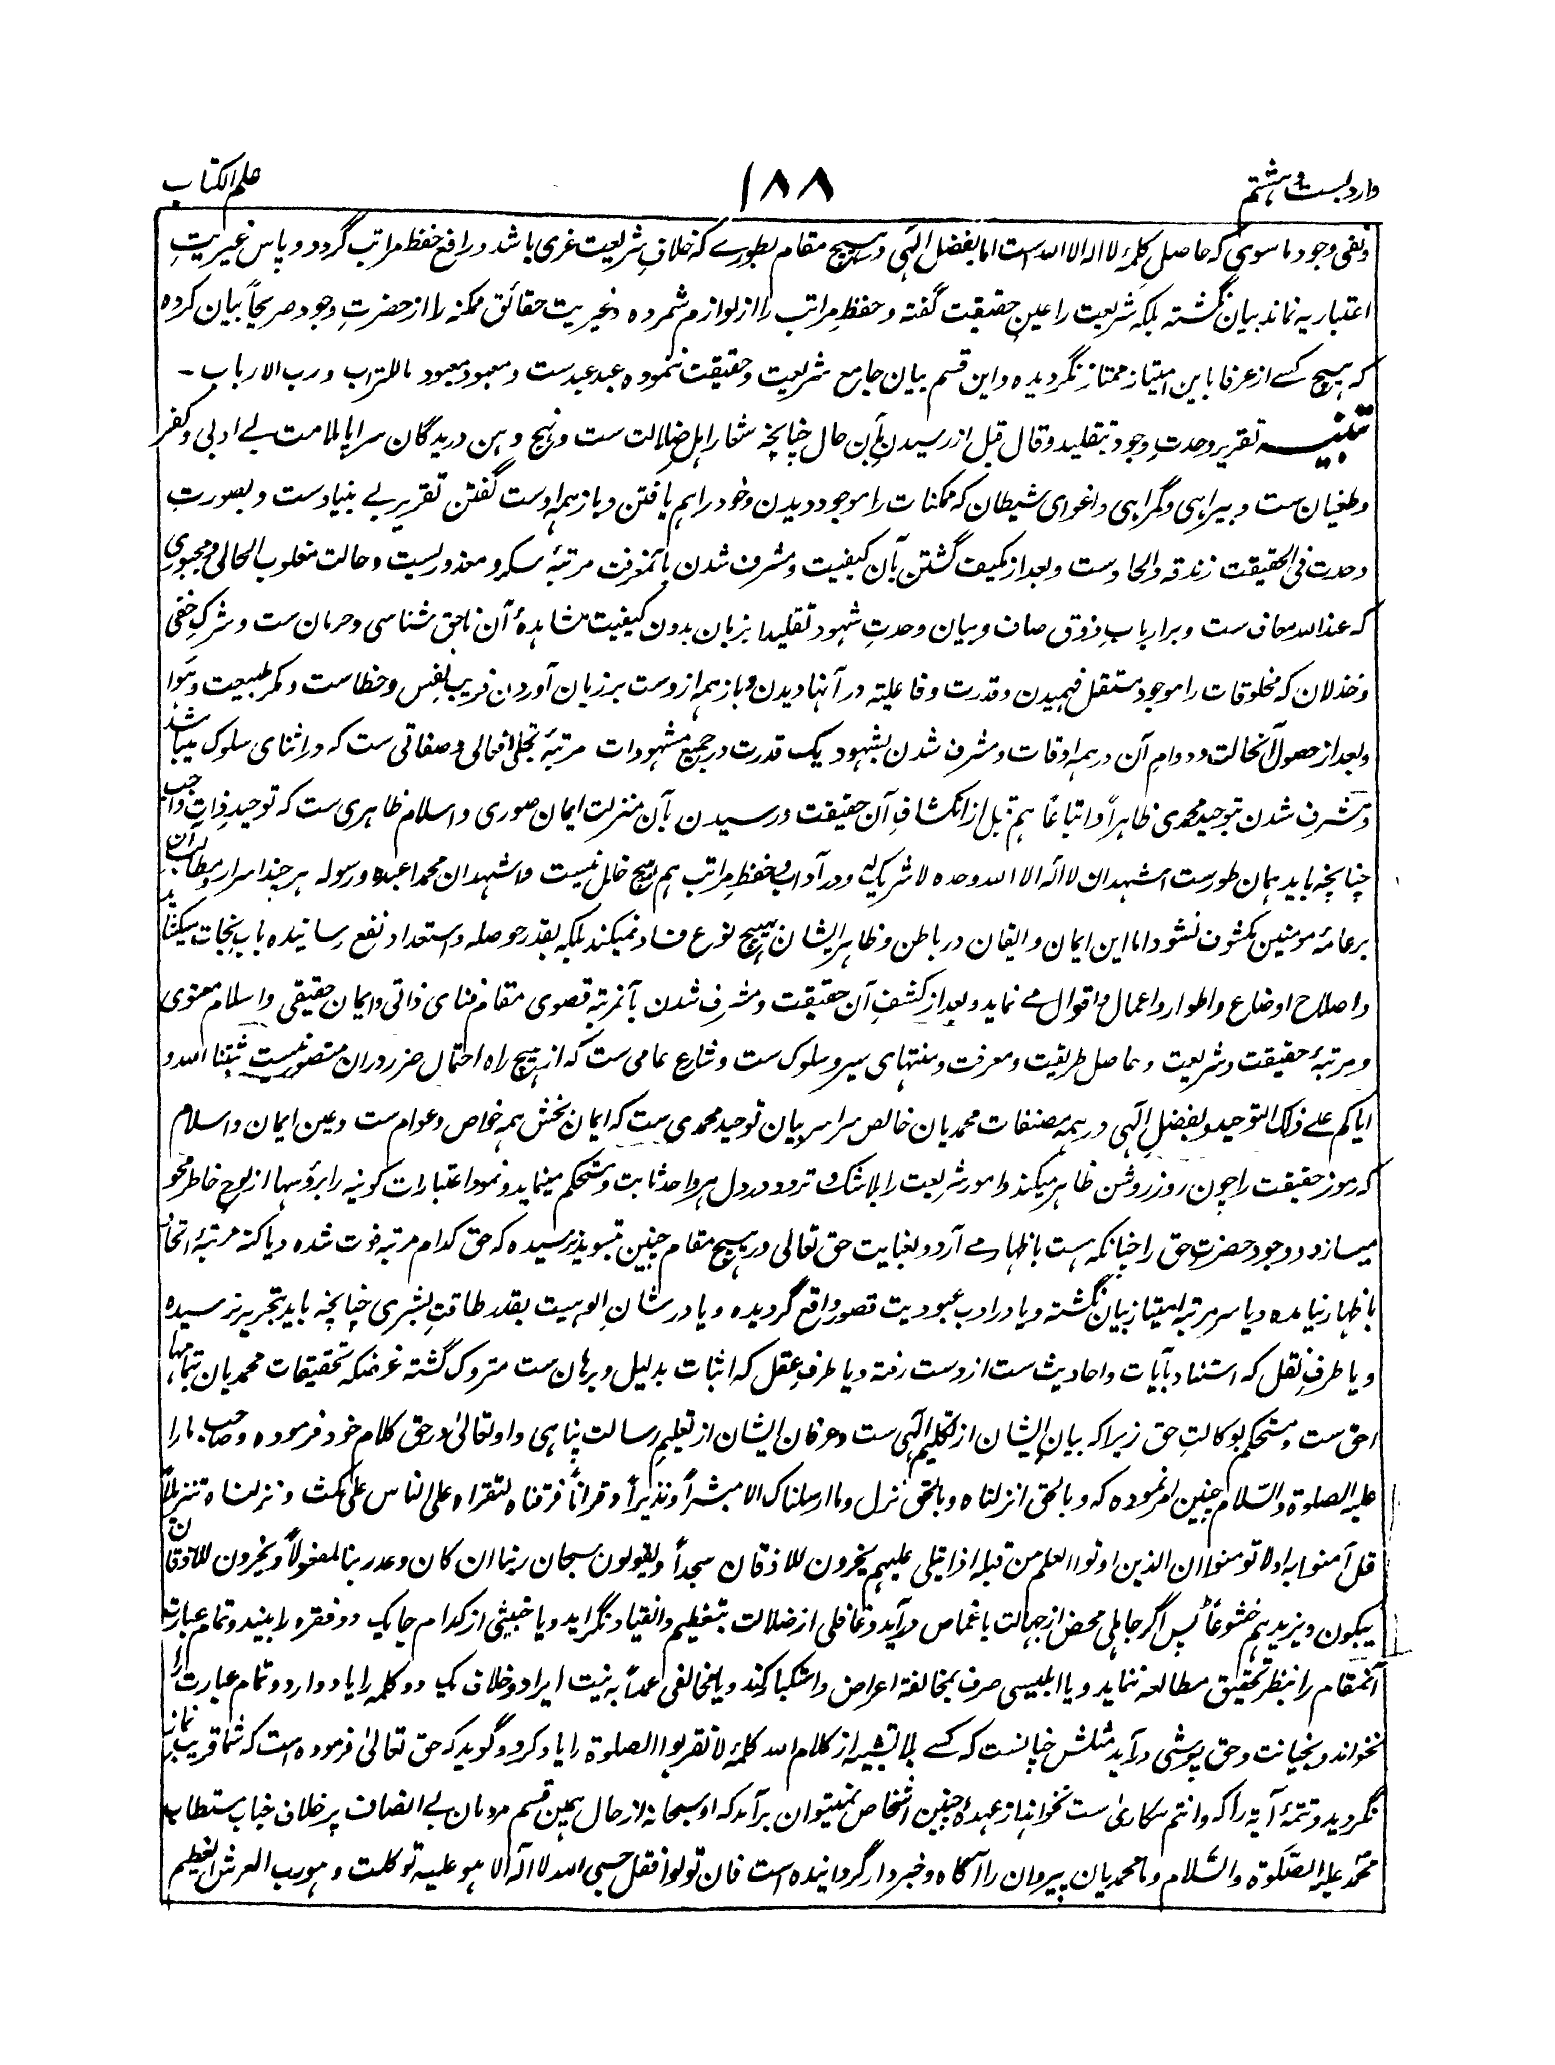 وارد بست و هشتم
۱۸۸
علم الکتاب
ونفی وجود ما سوی که حاصل کلمۂ لا اله الا الله است اما بفضل الہی در ہیچ مقام بطورے که خلاف شریعت غری باشد و رافع حفظ مراتب گردد و پاس غیریتِ
اعتباریه نماند بیان نگشته بلکه شریعت را عینِ حقیقت گفته و حفظ مراتب را از لوازم شمرده و غیریت حقائق ممکنه را از حضرتِ وجود صریحاً بیان کرده
که ہیچ کسے از عرفا باین امتیاز ممتاز نگردیده و این قسم بیان جامع شریعت و حقیقت ننموده عبد عبد ست و معبود معبود ما للتراب و رب الارباب ۔
تنبیه تقریر وحدتِ وجود بتقلید و قال قبل از رسیدن بآن حال چنانچه شعار اہل ضلالت ست و نہج دہن دریدگان سراپا ملامت بے ادبی و کفر
و طغیان ست و بیراہی و گمراہی و اغوای شیطان که ممکنات را موجود دیدن و خود را ہم یافتن و باز ہمه اوست گفتن تقریر بے بنیاد ست و بصورت
وحدت فی الحقیقت زندقه و الحاد ست و بعد از مکیف گشتن بآن کیفیت و مشرف شدن بآنمعرفت مرتبۂ سکر و معذوریست و حالت مغلوب الحالی و مجبوری
که عند الله معاف ست و بر ارباب ذوق صاف و بیان وحدتِ شہود تقلیدا بزبان بدون کیفیت مشاہدۂ آن ناحق شناسی و حرمان ست و شرکِ خفی
و خذلان که مخلوقات را موجود مستقل فہمیدن و قدرت و فاعلیته در آنہا دیدن و باز ہمه ازوست بر زبان آوردن فریب نفس و خطاست و مکر طبیعت و ہوا
و بعد از حصول آنحالت و دوام آن در ہمه اوقات و مشرف شدن بشہود یک قدرت در جمیع مشہودات مرتبۂ تجلی افعالی و صفاتی ست که در اثنای سلوک میباشد
و مشرف شدن بتوحید محمدی ظاہراً و اتباعاً ہم قبل از انکشافِ آن حقیقت و رسیدن بآن منزلت ایمان صوری و اسلام ظاہری ست که توحید ذات واجب
چنانچه باید ہمان طورست اشہد ان لا اله الا الله وحده لا شریک له و در آداب و حفظ مراتب ہم ہیچ خلل نیست و اشہد ان محمدا عبده و رسوله ہر چند اسرار و مطالب آن
بر عامۂ مومنین مکشوف نشود اما این ایمان و ایقان در باطن و ظاہر ایشان ہیچ نوع فساد نمیکند بلکه بقدر حوصله و استعداد نفع رسانیده باب نجات میکشاید
و اصلاح اوضاع و اطوار و اعمال و اقوال مے نماید و بعد از کشف آن حقیقت و مشرف شدن بآنمرتبه قصوی مقام فنای ذاتی و ایمان حقیقی و اسلام معنوی
و مرتبۂ حقیقت و شریعت و حاصل طریقت و معرفت و منتہای سیر و سلوک ست و شارع عامی ست که از ہیچ راه احتمال ضرر دران متصور نیست ثبتنا الله و
ایاکم علے ذلک التوحید و بفضلِ الہی در ہمه مصنفات محمدیان خالص سراسر بیان توحید محمدی ست که ایمان بخش ہمه خواص و عوام ست و عین ایمان و اسلام
که رموز حقیقت را چون روز روشن ظاہر میکند و امور شریعت را بلا شک و تردد در دل ہر واحد ثابت و مستحکم مینماید و نمود اعتبارات کونیه را برؤسہا از لوح خاطر محو
میسازد و وجود حضرتِ حق را چنانکه ہست باظہار مے آرد و بعنایت حق تعالی در ہیچ مقام چنین تسوید نرسیده که حق کدام مرتبه فوت شده و یا کنه مرتبۂ اتحاد
باظہار نیامده و یا سرِ مرتبه امتیاز بیان نگشته و یا در ادب عبودیت قصور واقع گردیده و یا در شانِ الوہیت بقدر طاقتِ بشری چنانچه باید بتحریر نرسیده
و یا طرفِ نقل که استناد بآیات و احادیث ست از دست رفته و یا طرفِ عقل که اثبات بدلیل و برہان ست متروک گشته غرضکه تحقیقات محمدیان بتمامہا
احق ست و مستحکم بوکالتِ حق زیرا که بیان ایشان از تکلیم الہی ست و عرفان ایشان از تعلیمِ رسالت پناہی و او تعالیٰ در حق کلام خود فرموده و صاحب ما را
علیه الصلوة والسلام چنین امر نموده که و بالحق انزلناه و بالحق نزل و ما ارسلناک الا مبشراً و نذیراً و قراناً فرقناه لتقراه علی الناس علی مکث و نزلناه تنزیلاً
قل آمنوا به او لا تومنوا ان الذین اوتوا العلم من قبله اذا یتلی علیہم یخرون للاذقان سجداً و یقولون سبحان ربنا ان کان وعد ربنا لمفعولاً و یخرون للاذقان
یبکون و یزیدہم خشوعاً پس اگر جاہلی محض از جہالت باغماض در آید و غافلی از ضلالت بتعظیم و انقیاد نگراید و یا خبیثی از کدام جا یک دو فقره را بیند و تمام عبارت
آنمقام را بنظر تحقیق مطالعه ننماید و یا ابلیسی صرف بمخالفة اعراض و استکبار کند و یا مخالفی عمداً به نیت ایراد و خلاف یک دو کلمه را یاد دارد و تمام عبارت را
نخواند و بخیانت و حق پوشی در آید مثلش چنانست که کسے بلا تشبیه از کلام الله کلمۂ لا تقربوا الصلوة را یاد کرد و گوید که حق تعالیٰ فرموده است که شما قریب نماز
نگردید و تتمۂ آیه را که و انتم سکاری ست نخواند از عہدۂ چنین اشخاص نمیتوان برآمد که او سبحانه از حال ہمین قسم مردمان بے انصاف پر خلاف جناب مستطاب
محمد علیه الصلوة والسلام و ما محمدیان پیروان را آگاه و خبردار گردانیده است فان تولوا فقل حسبی الله لا اله الا ہو علیه توکلت و ہو رب العرش العظیم